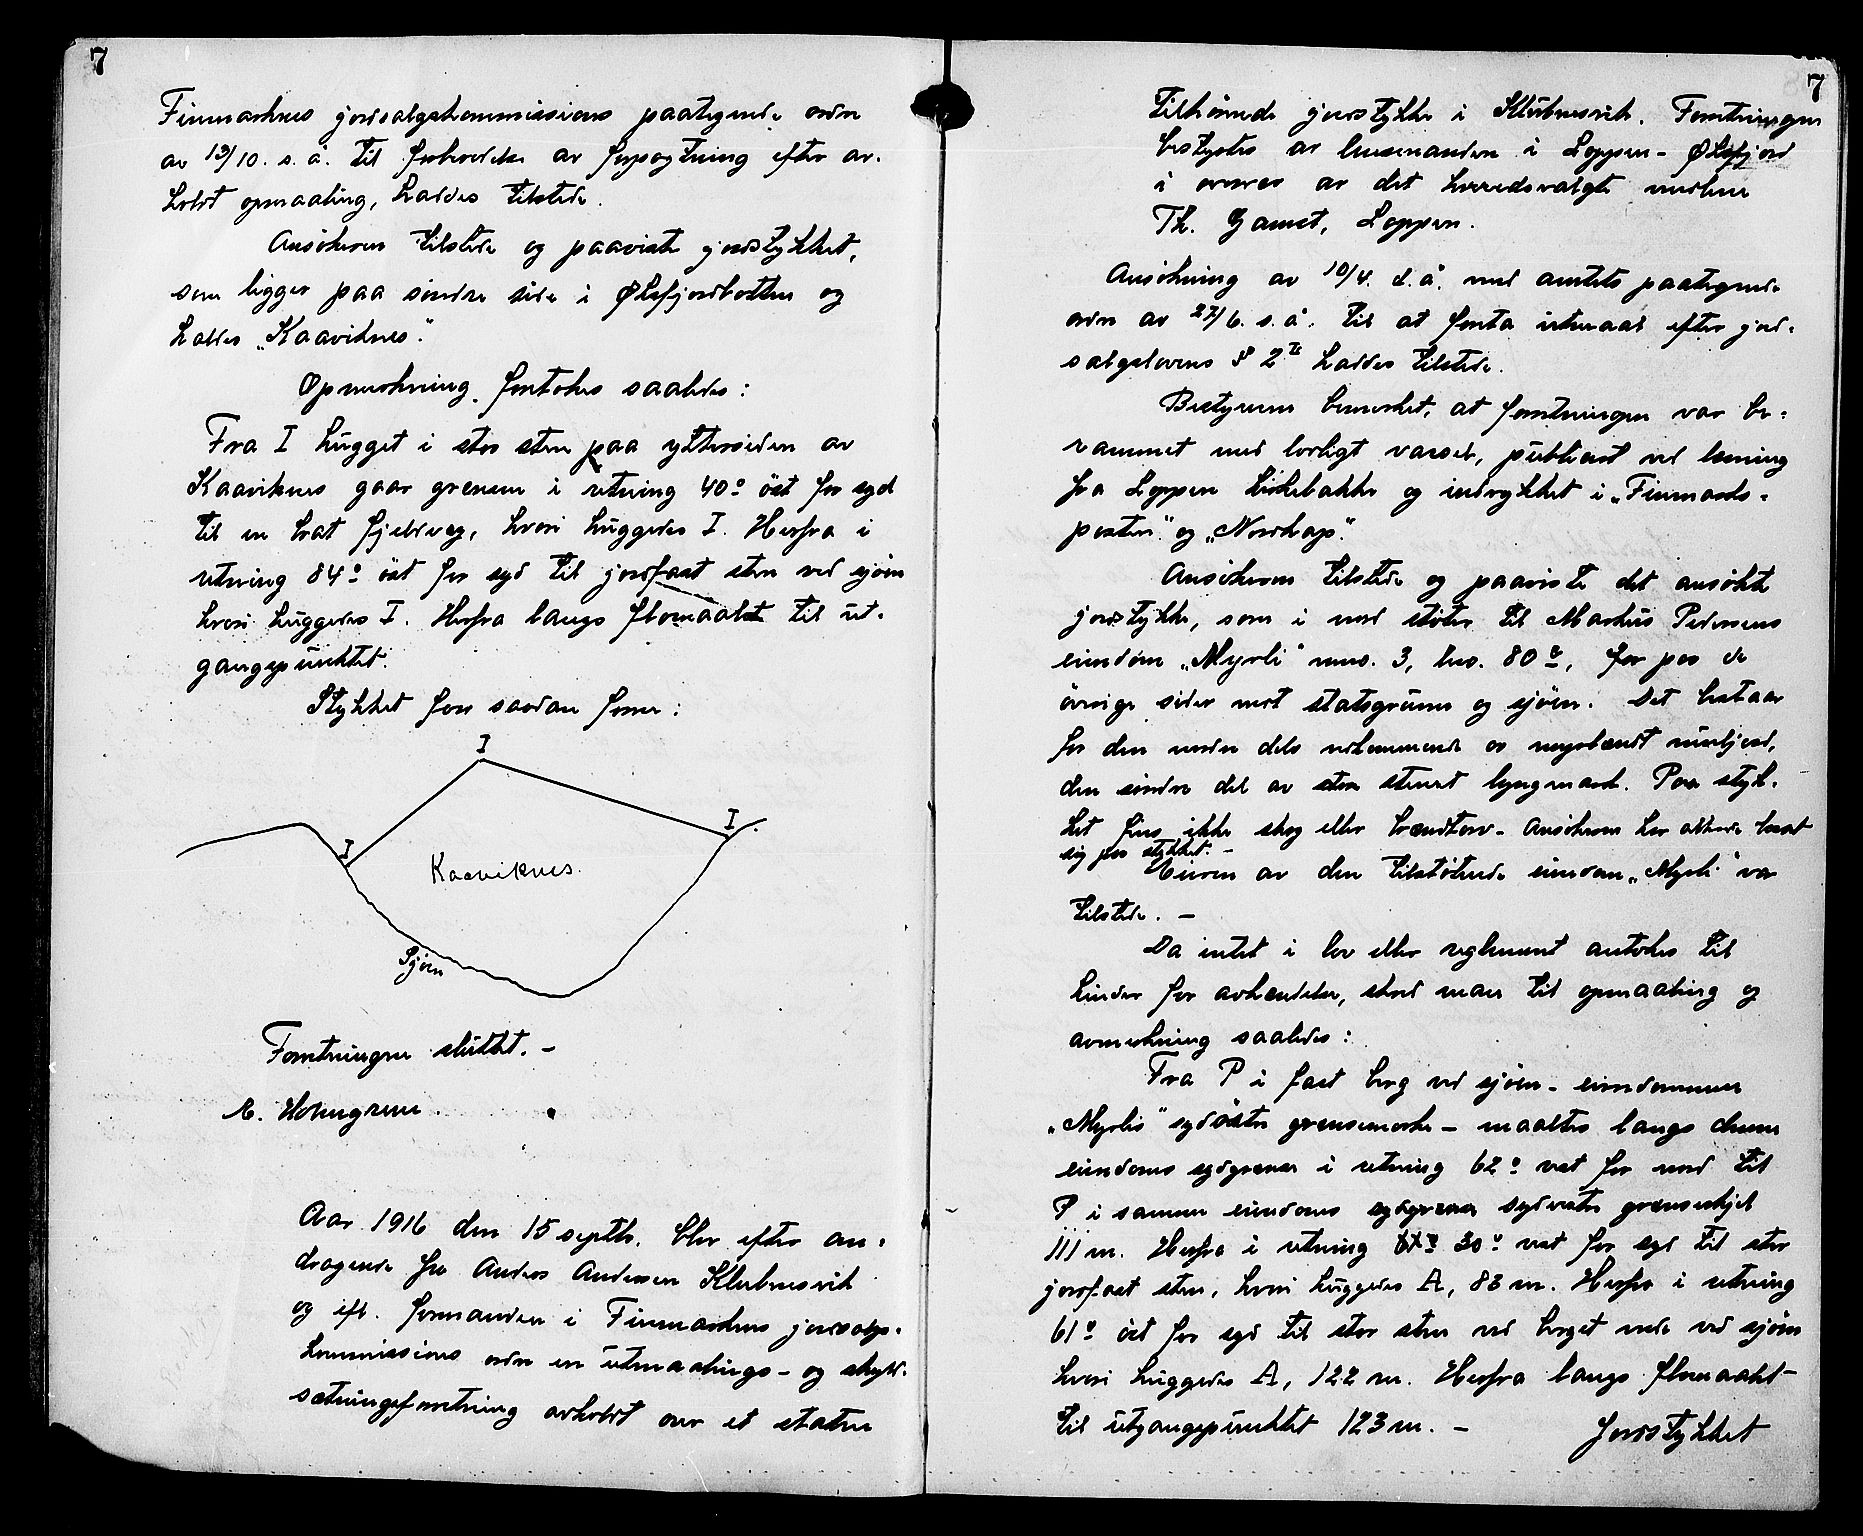 7
Finmarkens jordsalgskommissions paategnede ordre
av 13/10. s. å. til forberedelse av forpagtning efter av-
holdt opmaaling, havdes tilstede.
Ansökeren tilstede og paaviste jordstykket,
som ligger paa söndre side i Øksfjordbotten og
kaldes „Kaaviknes".
Opmerkning foretokes saaledes:
Fra I hugget i stor sten paa yttersiden av
Kaaviknes gaar grensen i retning 40° öst for syd
til en brat fjeldvæg, hvori huggedes I. Herfra i
retning 84° öst for syd til jordfast sten ved sjöen
hvori huggedes I. Herfra langs flomaalet til ut-
gangspunktet.
Stykket fees saadan form:
I
I
I
Kaaviknes.
Sjöen
Forretningen sluttet. –
E. Holmgren.
Aar 1916 den 15 septbr. blev efter an-
dragende fra Anders Andersen Klubnesvik
og eft. formanden i Finmarkens jordsalgs-
kommissions ordre en utmaalings- og skyld-
sætningsforretning avholdt over et staten
7
tilhörende jordstykke i Klubnesvik. Forretningen
bestyrtes av lensmanden i Loppen - Øksfjord
i nærvær av det herredsvalgte medlem
Th. Gamst, Loppen.
Ansökning av 10/4. d. å. med amtets paategnede
ordre av 27/6. s. å. til at foreta utmaal efter jord-
salgslovens § 2 II havdes tilstede.
Bestyreren bemerket, at forretningen var be-
rammet med lovligt varsel, publicert ved læsning
fra Loppen kirkebakke og indrykket i „Finmarks-
posten" og „Nordkap".
Ansökeren tilstede og paaviste det ansökte
jordstykke, som i nord stöter til Markus Pedersens
eiendom „Myrli" mno. 3, bno. 80, for paa de
övrige sider mot statsgrunn og sjöen. Det bestaar
for den nordre dels vedkommende av myrlændt muldjord,
den söndre del av sten stenet lyngmark. Paa styk-
ket fins ikke skog eller brændtorv. Ansökeren har allerede bosat
sig paa stykket. –
Eieren av den tilstötende eiendom „Myrli" var
tilstede. –
Da intet i lov eller reglement antokes til
hinder for avhændelse, skred man til opmaaling og
avmerkning saaledes:
Fra P i fast berg ved sjöen - eiendommen
„Myrlis" sydöstre grensemerke - maaltes langs denne
eiendoms sydgrense i retning 62° vest for nord til
P i samme eiendoms sydgrense sydvestre grenseskjel
111 m. Herfra i retning 30° vest for syd til stor
jordfast sten, hvori huggedes A, 83 m. Herfra i retning
61° öst for syd til stor sten ved berget nede ved sjöen
hvori huggedes A, 122 m. Herfra langs flomaalet
til utgangspunktet 123 m. –
Jordstykket